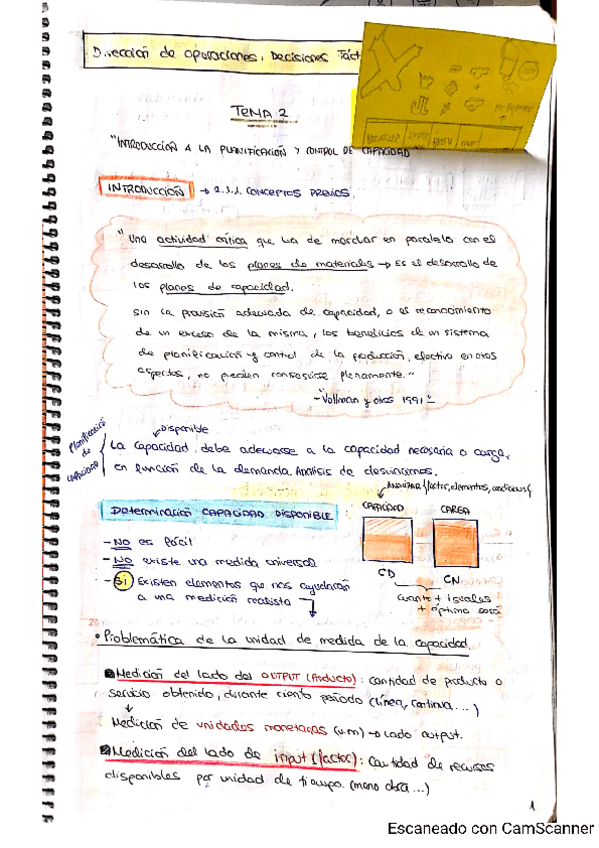 Dirección de operaciones. Decisiones Táct
TEMA 2
"INTRODUCCIÓN A LA PLANIFICACIÓN Y CONTROL DE CAPACIDAD"
INTRODUCCIÓN → 2.1.1. CONCEPTOS PREVIOS.
"Una actividad crítica que ha de marchar en paralelo con el
desarrollo de los planes de materiales → Es el desarrollo de
los planes de capacidad.
Sin la provisión adecuada de capacidad, o el reconocimiento
de un exceso de la misma, los beneficios de un sistema
de planificación y control de la producción, efectivo en otros
aspectos, no pueden conseguirse plenamente."
- Vollman y otros 1991"
Planificación
de
CAPACIDAD
Disponible
La capacidad, debe adecuarse a la capacidad necesaria o carga,
en función de la demanda. Análisis de desviaciones.
Determinación CAPACIDAD DISPONIBLE
ANALIZAR (factor, elementos, condiciones)
CAPACIDAD CARGA
- NO es fácil
- NO existe una medida universal
- Sí Existen elementos que nos ayudarán
a una medición realista
CD CN
cuanto + iguales
+ óptimo será
• Problemática de la unidad de medida de la capacidad.
Medición del lado del OUTPUT (Producto): cantidad de producto o
servicio obtenido, durante cierto periodo (línea, continua...)
Medición de unidades monetarias (u.m) → lado output.
Medición del lado de input (factor): Cantidad de recursos
disponibles por unidad de tiempo. (mano obra...)
1
Escaneado con CamScanner